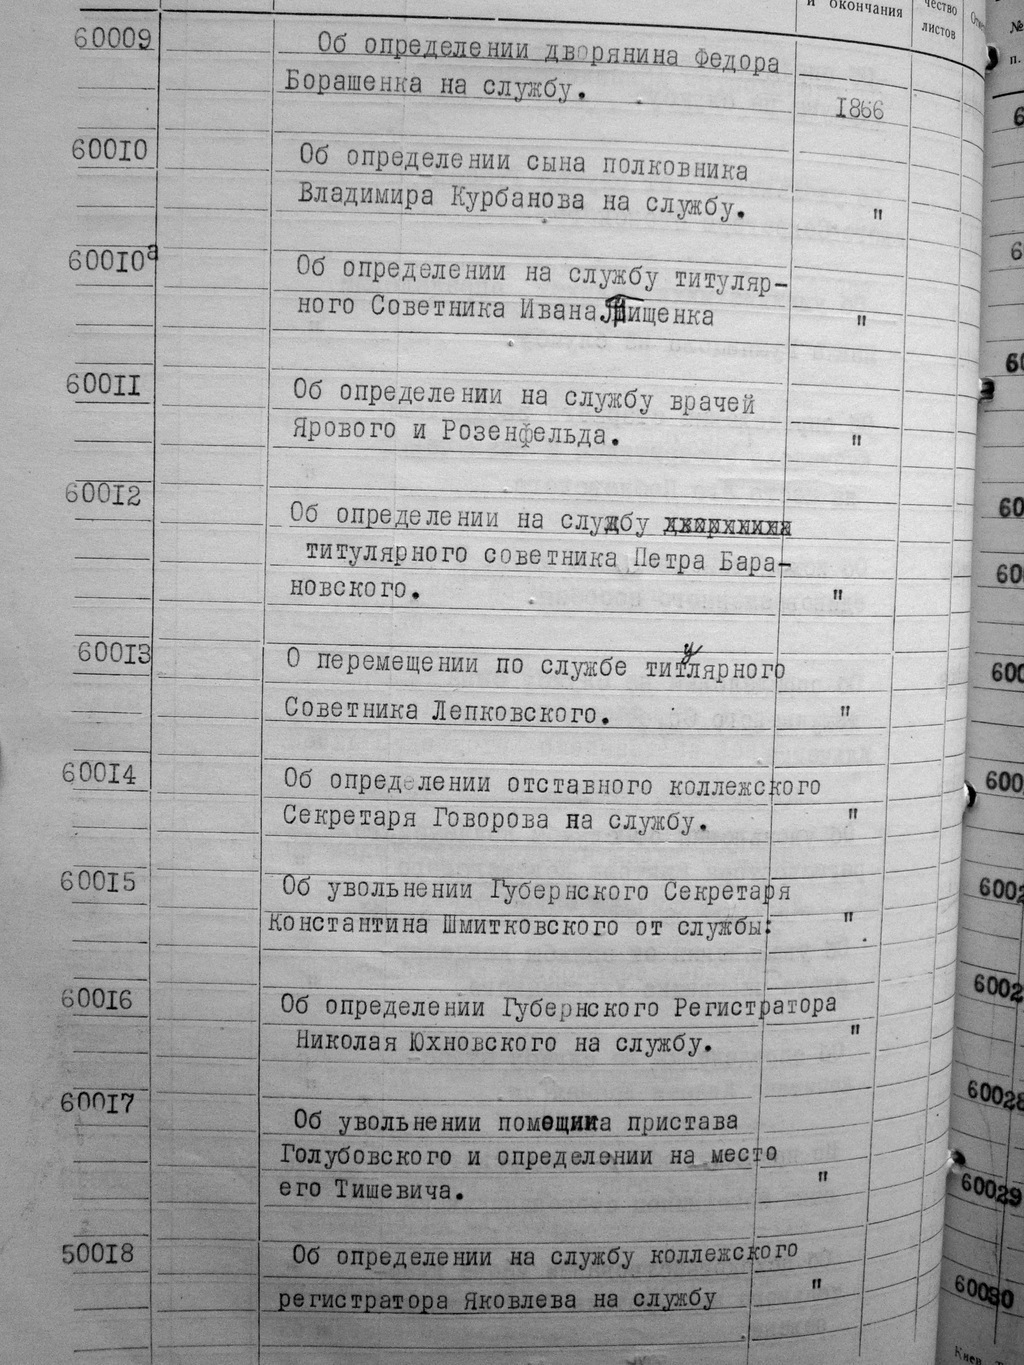 и окончания
чество
листов
№
п.
60009
Об определении дворянина Федора
Борашенка на службу.
1866
60010
Об определении сына полковника
Владимира Курбанова на службу.
"
60010а
Об определении на службу титуляр-
ного Советника Ивана Тищенка
"
60011
Об определении на службу врачей
Ярового и Розенфельда.
"
60012
Об определении на службу
титулярного советника Петра Бара-
новского.
"
60013
О перемещении по службе титулярного
Советника Лепковского.
"
60014
Об определении отставного коллежского
Секретаря Говорова на службу.
"
60015
Об увольнении Губернского Секретаря
Константина Шмитковского от службы:
"
60016
Об определении Губернского Регистратора
Николая Юхновского на службу.
"
60017
Об увольнении помощника пристава
Голубовского и определении на место
его Тишевича.
"
50018
Об определении на службу коллежского
регистратора Яковлева на службу
"
60028
60029
60030